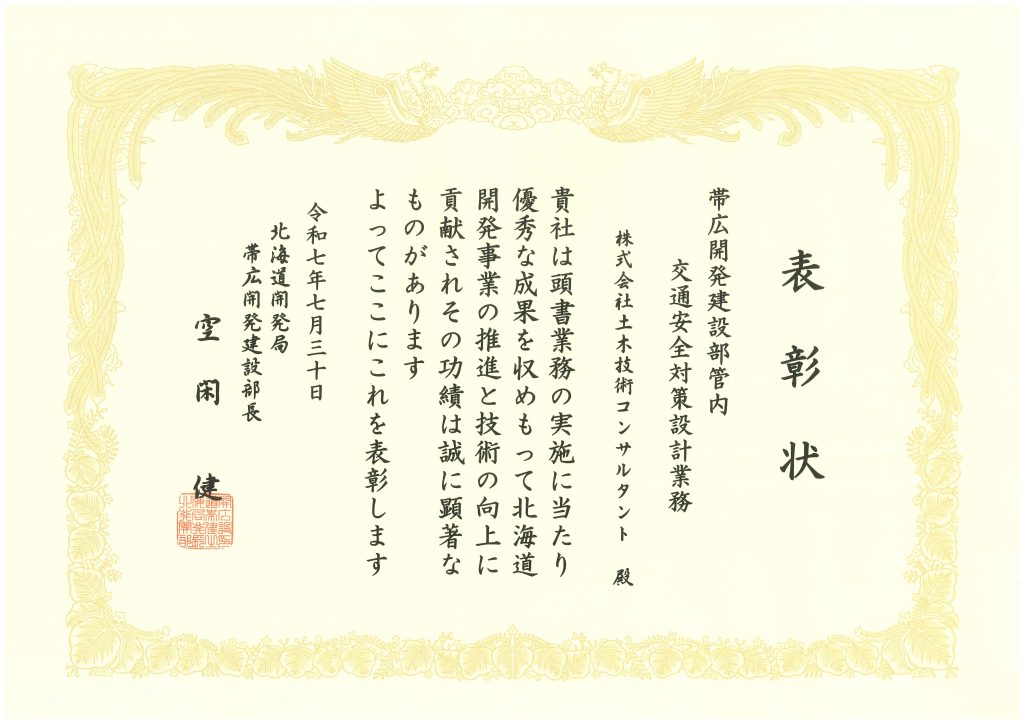 表彰状
帯広開発建設部管内
交通安全対策設計業務
株式会社土木技術コンサルタント 殿
貴社は頭書業務の実施に当たり
優秀な成果を収めもって北海道
開発事業の推進と技術の向上に
貢献されその功績は誠に顕著な
ものがあります
よってここにこれを表彰します
令和七年七月三十日
北海道開発局
帯広開発建設部長
空閑健